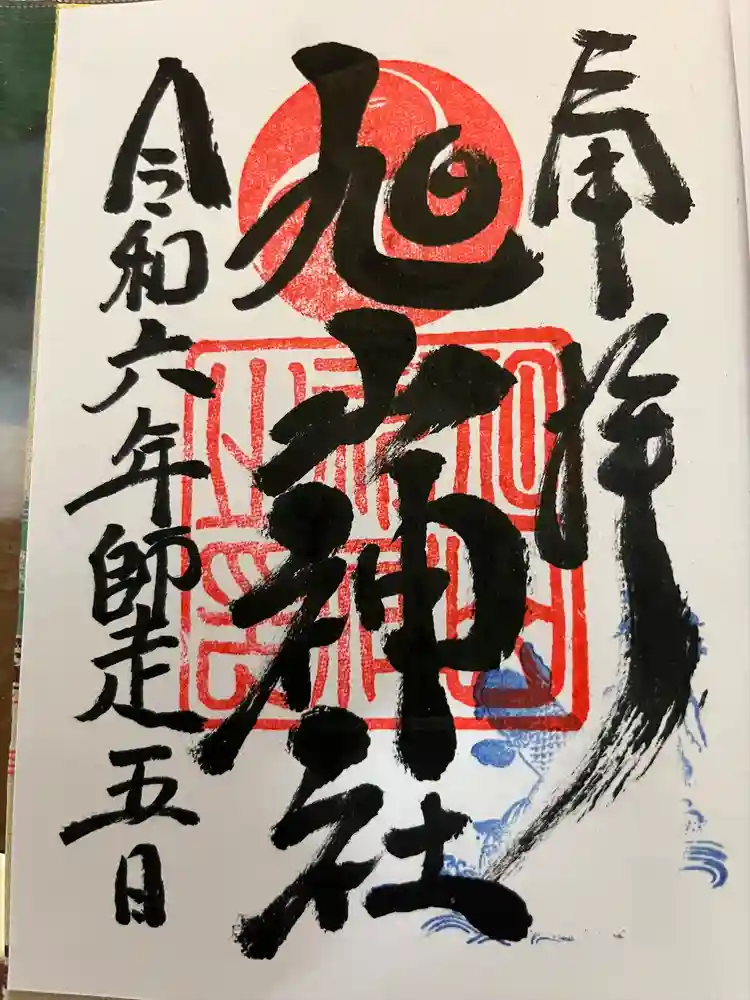 奉拝
旭山神社
令和六年師走五日